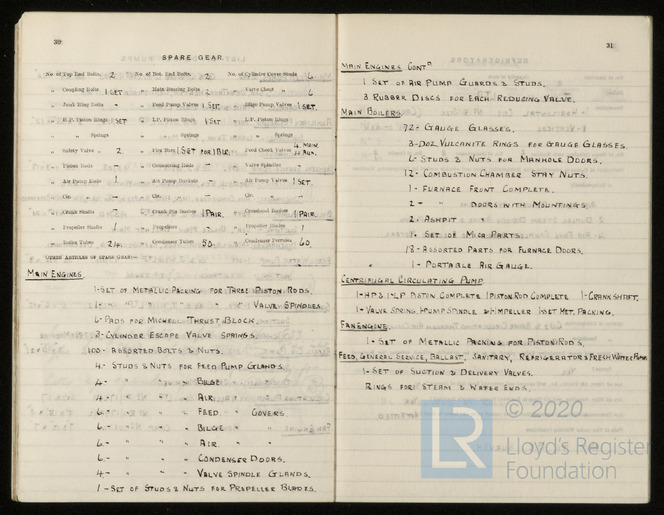 30
SPARE GEAR.
No. of Top End Bolts. 2 No. of Bot. End Bolts. 2 No. of Cylinder Cover Studs 6
„ Coupling Bolts 1 SET „ Main Bearing Bolts 2 „ Valve Chest „ 6
„ Junk Ring Bolts - „ Feed Pump Valves 1 SET „ Bilge Pump Valves 1 SET.
„ H.P. Piston Rings SET „ I.P. Piston Rings 1 SET „ L.P. Piston Rings
„ „ Springs „ „ Springs „ „ Springs
„ Safety Valve „ 2 „ Fire Bars 1 SET FOR 1 BLR. „ Feed Check Valves 4 MAIN
„ Piston Rods - „ Connecting Rods - „ Valve Spindles
„ Air Pump Rods 1 „ Air Pump Buckets - „ Air Pump Valves 1 SET.
„ Cir. „ - „ Cir. „ - „ Cir. „
„ Crank Shafts - „ Crank Pin Bushes 1 PAIR. „ Crosshead Bushes 1 PAIR
„ Propeller Shafts 1 „ Propellers 1 „ Propeller Blades 1
„ Boiler Tubes 24 „ Condenser Tubes 50 „ Condenser Ferrules 60
OTHER ARTICLES OF SPARE GEAR:—
MAIN ENGINES.
1-SET OF METALLIC PACKING FOR THREE PISTON RODS.
1- " " " " " VALVE SPINDLES.
6-PADS FOR MICHELL THRUST BLOCK.
CYLINDER ESCAPE VALVE SPRINGS.
100 - ASSORTED BOLTS & NUTS.
4 - STUDS & NUTS FOR FEED PUMP GLANDS.
4 - " " " BILGE "
4 - " " " AIR. "
6 - " " " FEED " COVERS
6 - " " " BILGE " "
6 - " " " AIR. " "
6 - " " " CONDENSER DOORS.
4 - " " " VALVE SPINDLE GLANDS.
1 - SET OF STUDS & NUTS FOR PROPELLER BLADES.
31
MAIN ENGINES CONTD
1 SET OF AIR PUMP GUARDS & STUDS.
3 RUBBER DISCS FOR EACH REDUCING VALVE.
MAIN BOILERS
72 - GAUGE GLASSES.
3-DOZ. VULCANITE RINGS FOR GAUGE GLASSES.
6 - STUDS & NUTS FOR MANHOLE DOORS.
12 - COMBUSTION CHAMBER STAY NUTS.
1 - FURNACE FRONT COMPLETE.
2 - " DOORS WITH MOUNTINGS.
2 - ASHPIT "
SET OF MICA PARTS.
18 - ASSORTED PARTS FOR FURNACE DOORS.
1 - PORTABLE AIR GAUGE.
CENTRIFUGAL CIRCULATING PUMP
1 PISTON ROD COMPLETE 1-CRANK SHAFT.
1 - VALVE SPRING 1 PUMP SPINDLE & IMPELLER 1 SET MET. PACKING.
FAN ENGINE.
1 - SET OF METALLIC PACKING FOR PISTON RODS.
FEED, GENERAL SERVICE, BALLAST, SANITARY, REFRIGERATOR & FRESH WATER PUMP
1 - SET OF SUCTION & DELIVERY VALVES.
RINGS FOR STEAM & WATER ENDS.
LR © 2020
Lloyd's Register
Foundation